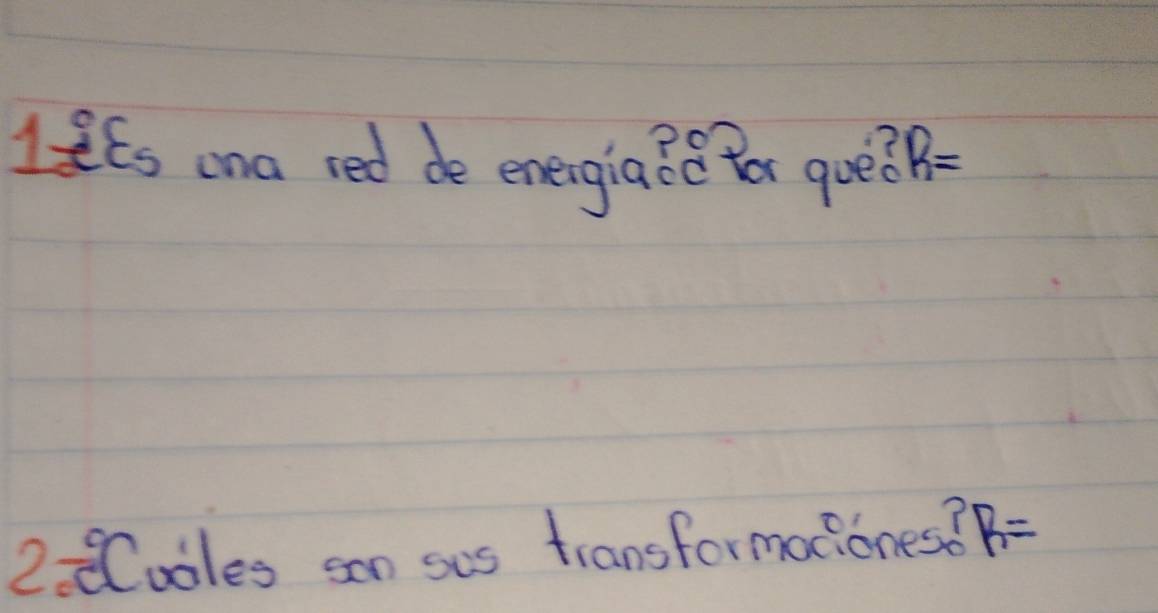 1.-¿Es una red de energía? ¿Por qué? R=
2.-¿Cuáles son sus transformaciónes? R=